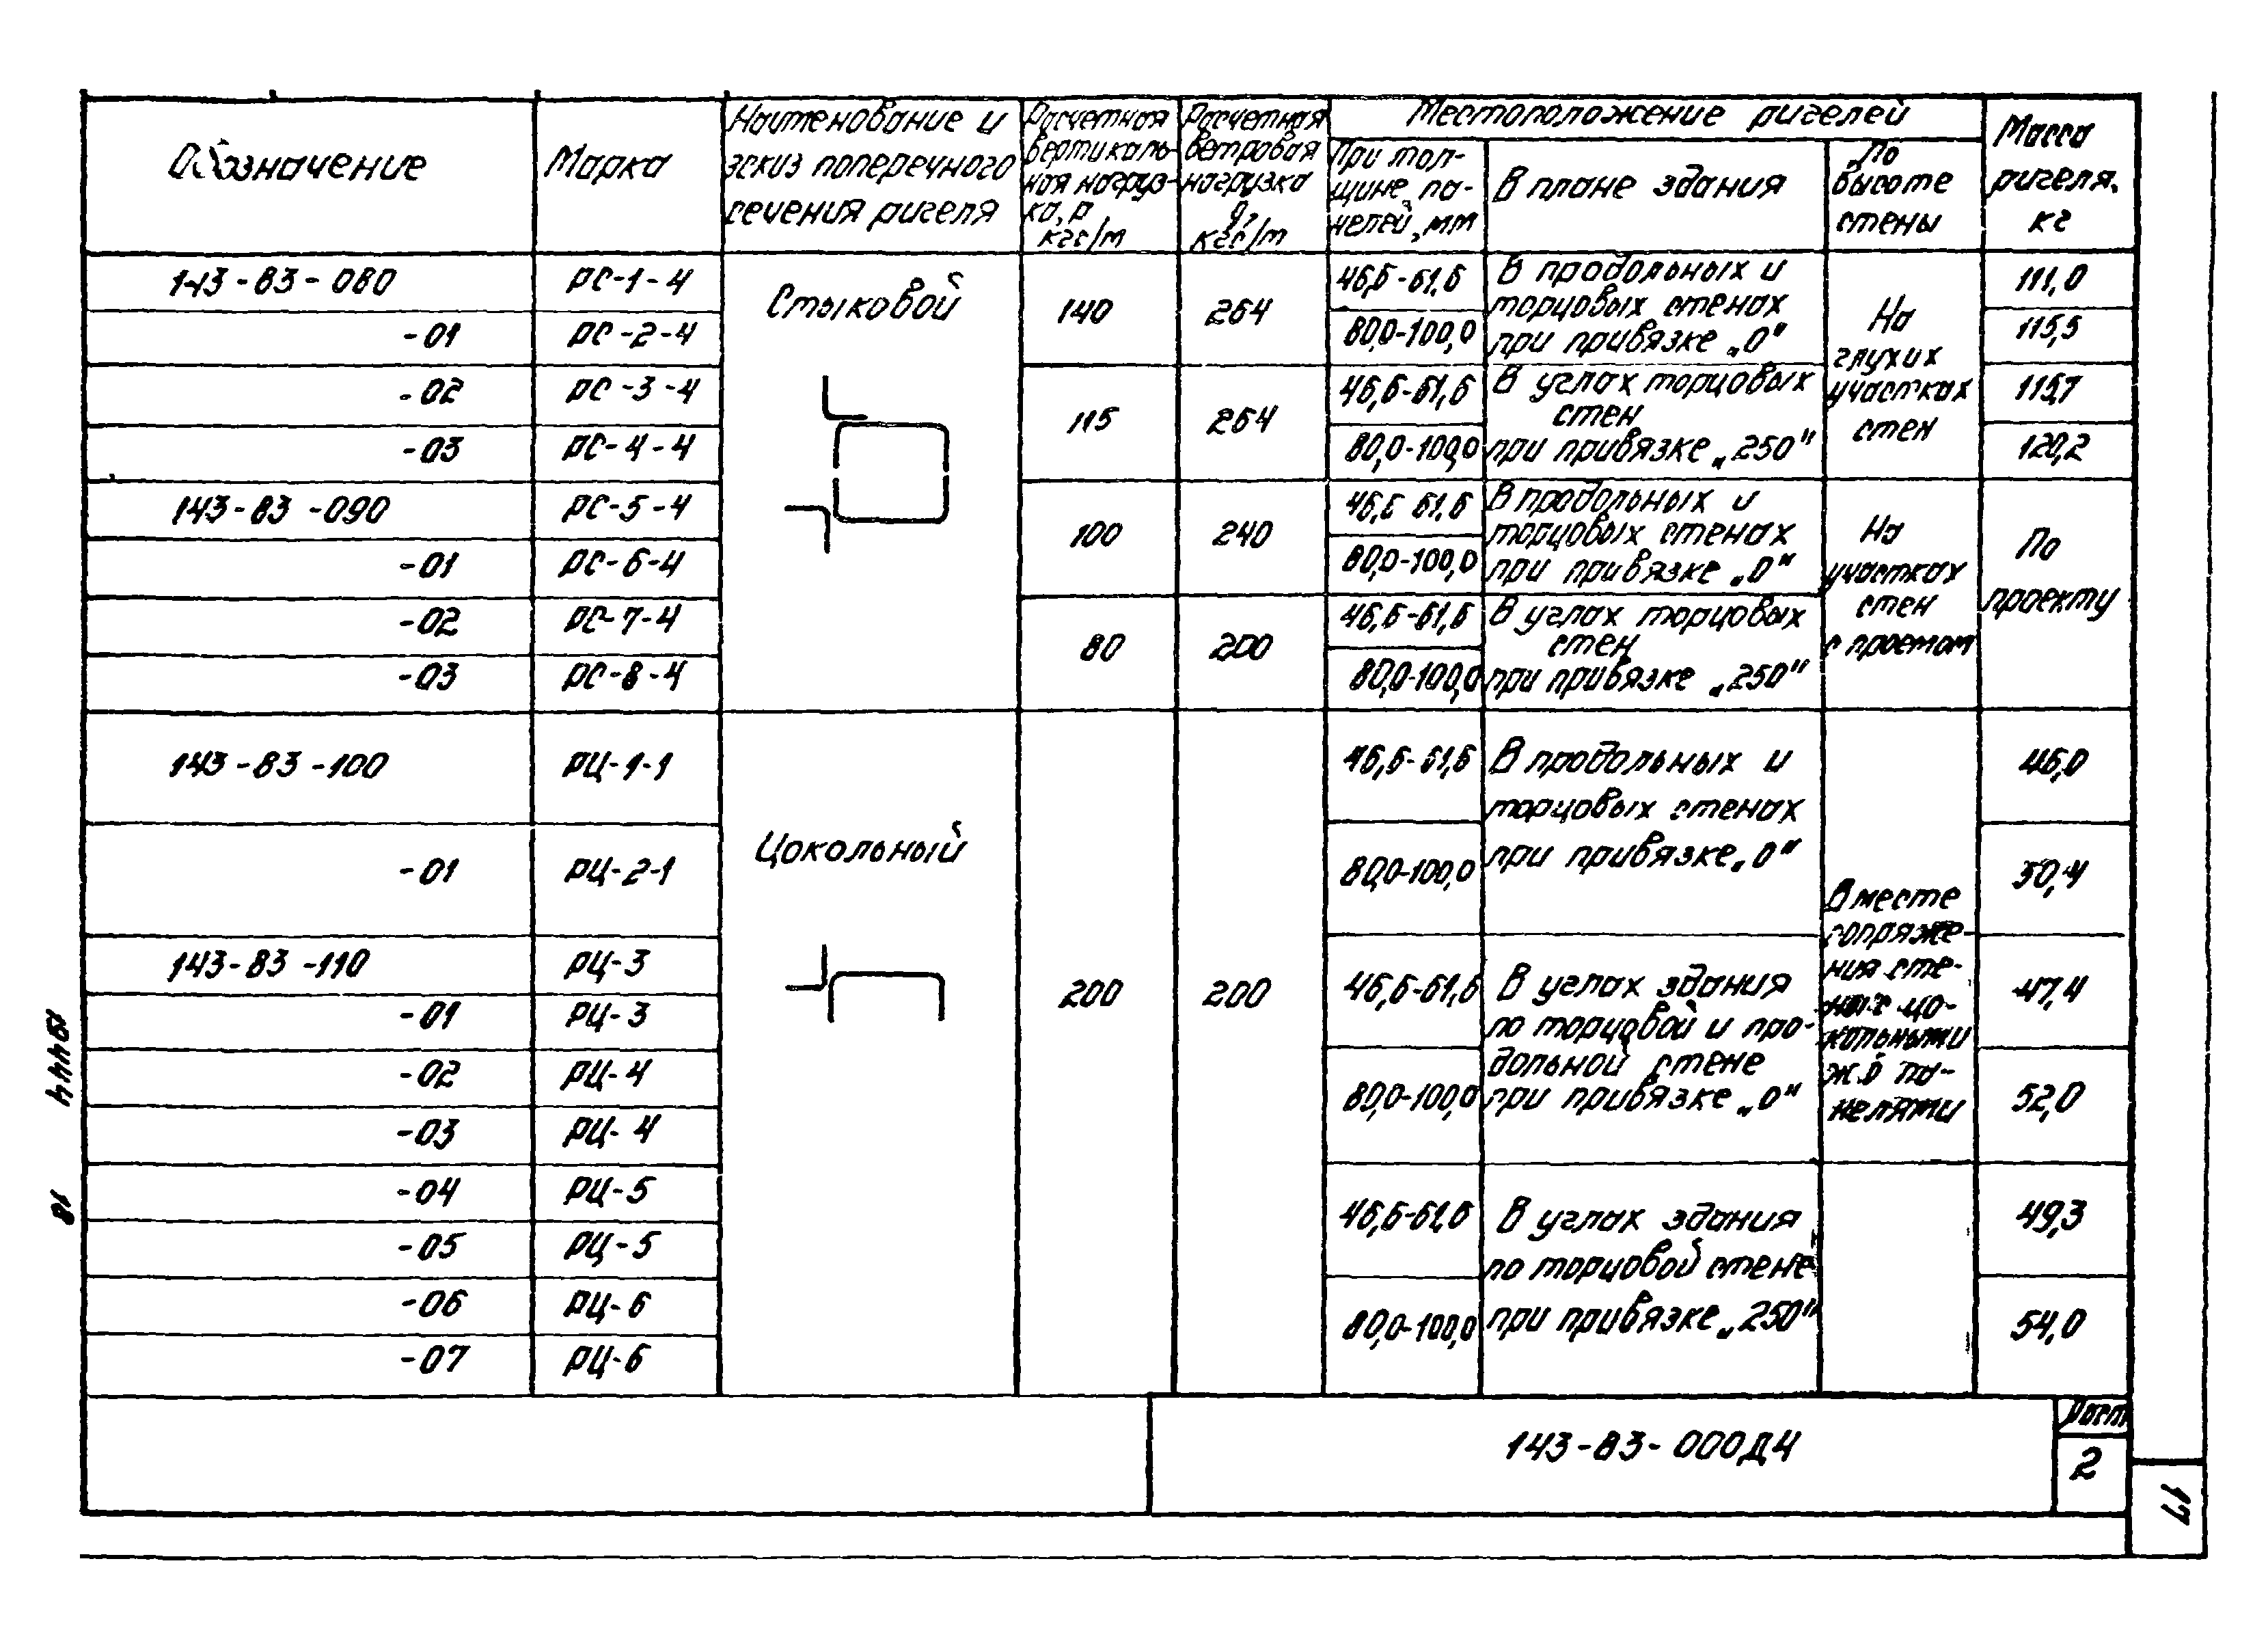 Обозначение
Марка
Наименование и
эскиз поперечного
сечения ригеля
Расчетная
вертикаль-
ная нагруз-
ка, р
кгс/м
Расчетная
ветровая
нагрузка
q,
кгс/м
Местоположение ригелей
При тол-
щине па-
нелей, мм
В плане здания
По
высоте
стены
Масса
ригеля,
кг
143-83-080 РС-1-4
-01 РС-2-4
-02 РС-3-4
-03 РС-4-4
143-83-090 РС-5-4
-01 РС-6-4
-02 РС-7-4
-03 РС-8-4
Стыковой
140 264
115 264
100 240
80 200
46,6-61,6
80,0-100,0
46,6-61,6
80,0-100,0
46,6 61,6
80,0-100,0
46,6-61,6
80,0-100,0
В продольных и
торцовых стенах
при привязке „0"
В углах торцовых
стен
при привязке „250"
В продольных и
торцовых стенах
при привязке „0"
В углах торцовых
стен
при привязке „250"
На
глухих
участках
стен
На
участках
стен
с проемом
111,0
115,5
115,7
120,2
По
проекту
143-83-100 РЦ-1-1
-01 РЦ-2-1
143-83-110 РЦ-3
-01 РЦ-3
-02 РЦ-4
-03 РЦ-4
-04 РЦ-5
-05 РЦ-5
-06 РЦ-6
-07 РЦ-6
Цокольный
200 200
46,6-61,6
80,0-100,0
46,6-61,6
80,0-100,0
46,6-61,6
80,0-100,0
В продольных и
торцовых стенах
при привязке „0"
В углах здания
по торцовой и про-
дольной стене
при привязке „0"
В углах здания
по торцовой стене
при привязке „250"
В месте
сопряже-
ния сте-
цо-
кольными
ж.б па-
нелями
46,0
50,4
47,4
52,0
49,3
54,0
143-83-000Д4
Лист
2
17
19444
18